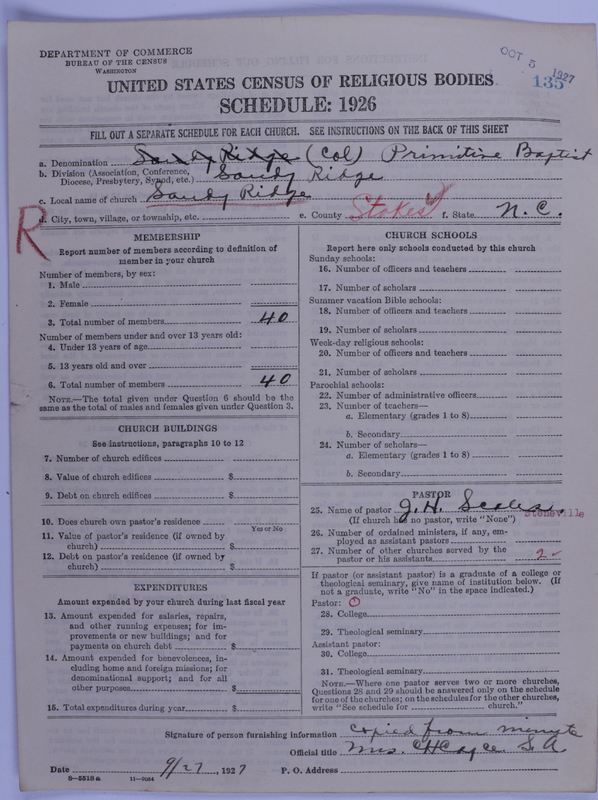 DEPARTMENT OF COMMERCE
BUREAU OF THE CENSUS
WASHINGTON
OCT 5 1927
135
UNITED STATES CENSUS OF RELIGIOUS BODIES
SCHEDULE: 1926
FILL OUT A SEPARATE SCHEDULE FOR EACH CHURCH. SEE INSTRUCTIONS ON THE BACK OF THIS SHEET
a. Denomination Sandy Ridge (Col) Primitive Baptist
b. Division (Association, Conference, Diocese, Presbytery, Synod, etc.) Sandy Ridge
c. Local name of church Sandy Ridge
d. City, town, village, or township, etc. e. County Stokes f. State N.C.
R
MEMBERSHIP
Report number of members according to definition of
member in your church
Number of members, by sex:
1. Male
2. Female
3. Total number of members 40
Number of members under and over 13 years old:
4. Under 13 years of age
5. 13 years old and over
6. Total number of members 40
NOTE.—The total given under Question 6 should be the
same as the total of males and females given under Question 3.
CHURCH BUILDINGS
See instructions, paragraphs 10 to 12
7. Number of church edifices
8. Value of church edifices $
9. Debt on church edifices $
10. Does church own pastor's residence
Yes or No
11. Value of pastor's residence (if owned by
church) $
12. Debt on pastor's residence (if owned by
church) $
EXPENDITURES
Amount expended by your church during last fiscal year
13. Amount expended for salaries, repairs,
and other running expenses; for im-
provements or new buildings; and for
payments on church debt $
14. Amount expended for benevolences, in-
cluding home and foreign missions; for
denominational support; and for all
other purposes $
15. Total expenditures during year $
CHURCH SCHOOLS
Report here only schools conducted by this church
Sunday schools:
16. Number of officers and teachers
17. Number of scholars
Summer vacation Bible schools:
18. Number of officers and teachers
19. Number of scholars
Week-day religious schools:
20. Number of officers and teachers
21. Number of scholars
Parochial schools:
22. Number of administrative officers
23. Number of teachers—
a. Elementary (grades 1 to 8)
b. Secondary
24. Number of scholars—
a. Elementary (grades 1 to 8)
b. Secondary
PASTOR
25. Name of pastor J. H. Scales, Stoneville
(If church has no pastor, write "None")
26. Number of ordained ministers, if any, em-
ployed as assistant pastors
27. Number of other churches served by the
pastor or his assistants 2
If pastor (or assistant pastor) is a graduate of a college or
theological seminary, give name of institution below. (If
not a graduate, write "No" in the space indicated.)
Pastor: 0
28. College
29. Theological seminary
Assistant pastor:
30. College
31. Theological seminary
NOTE.—Where one pastor serves two or more churches,
Questions 28 and 29 should be answered only on the schedule
for one of the churches; on the schedules for the other churches,
write "See schedule for church."
Signature of person furnishing information copied from minute
Official title Mrs. C H Cayce S. A.
Date 9/27, 1927 P. O. Address
8-5518a 11-9064